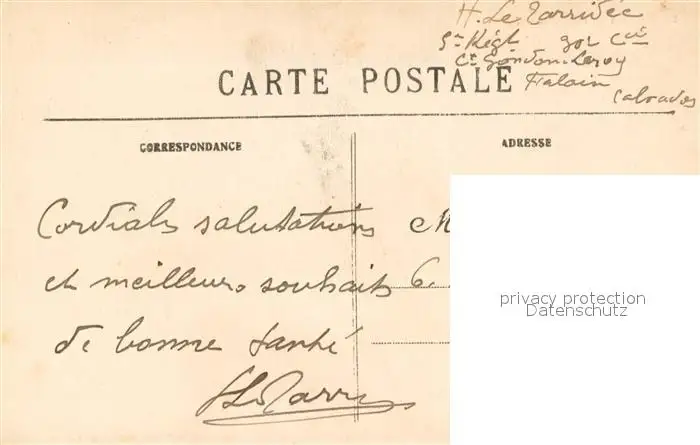 H. Le Tarridec
5e Régt
Falaise
Calvados
CARTE POSTALE
CORRESPONDANCE
ADRESSE
Cordiales salutations
et meilleurs souhaits
de bonne santé
HLeTarri
M
6.
privacy protection
Datenschutz